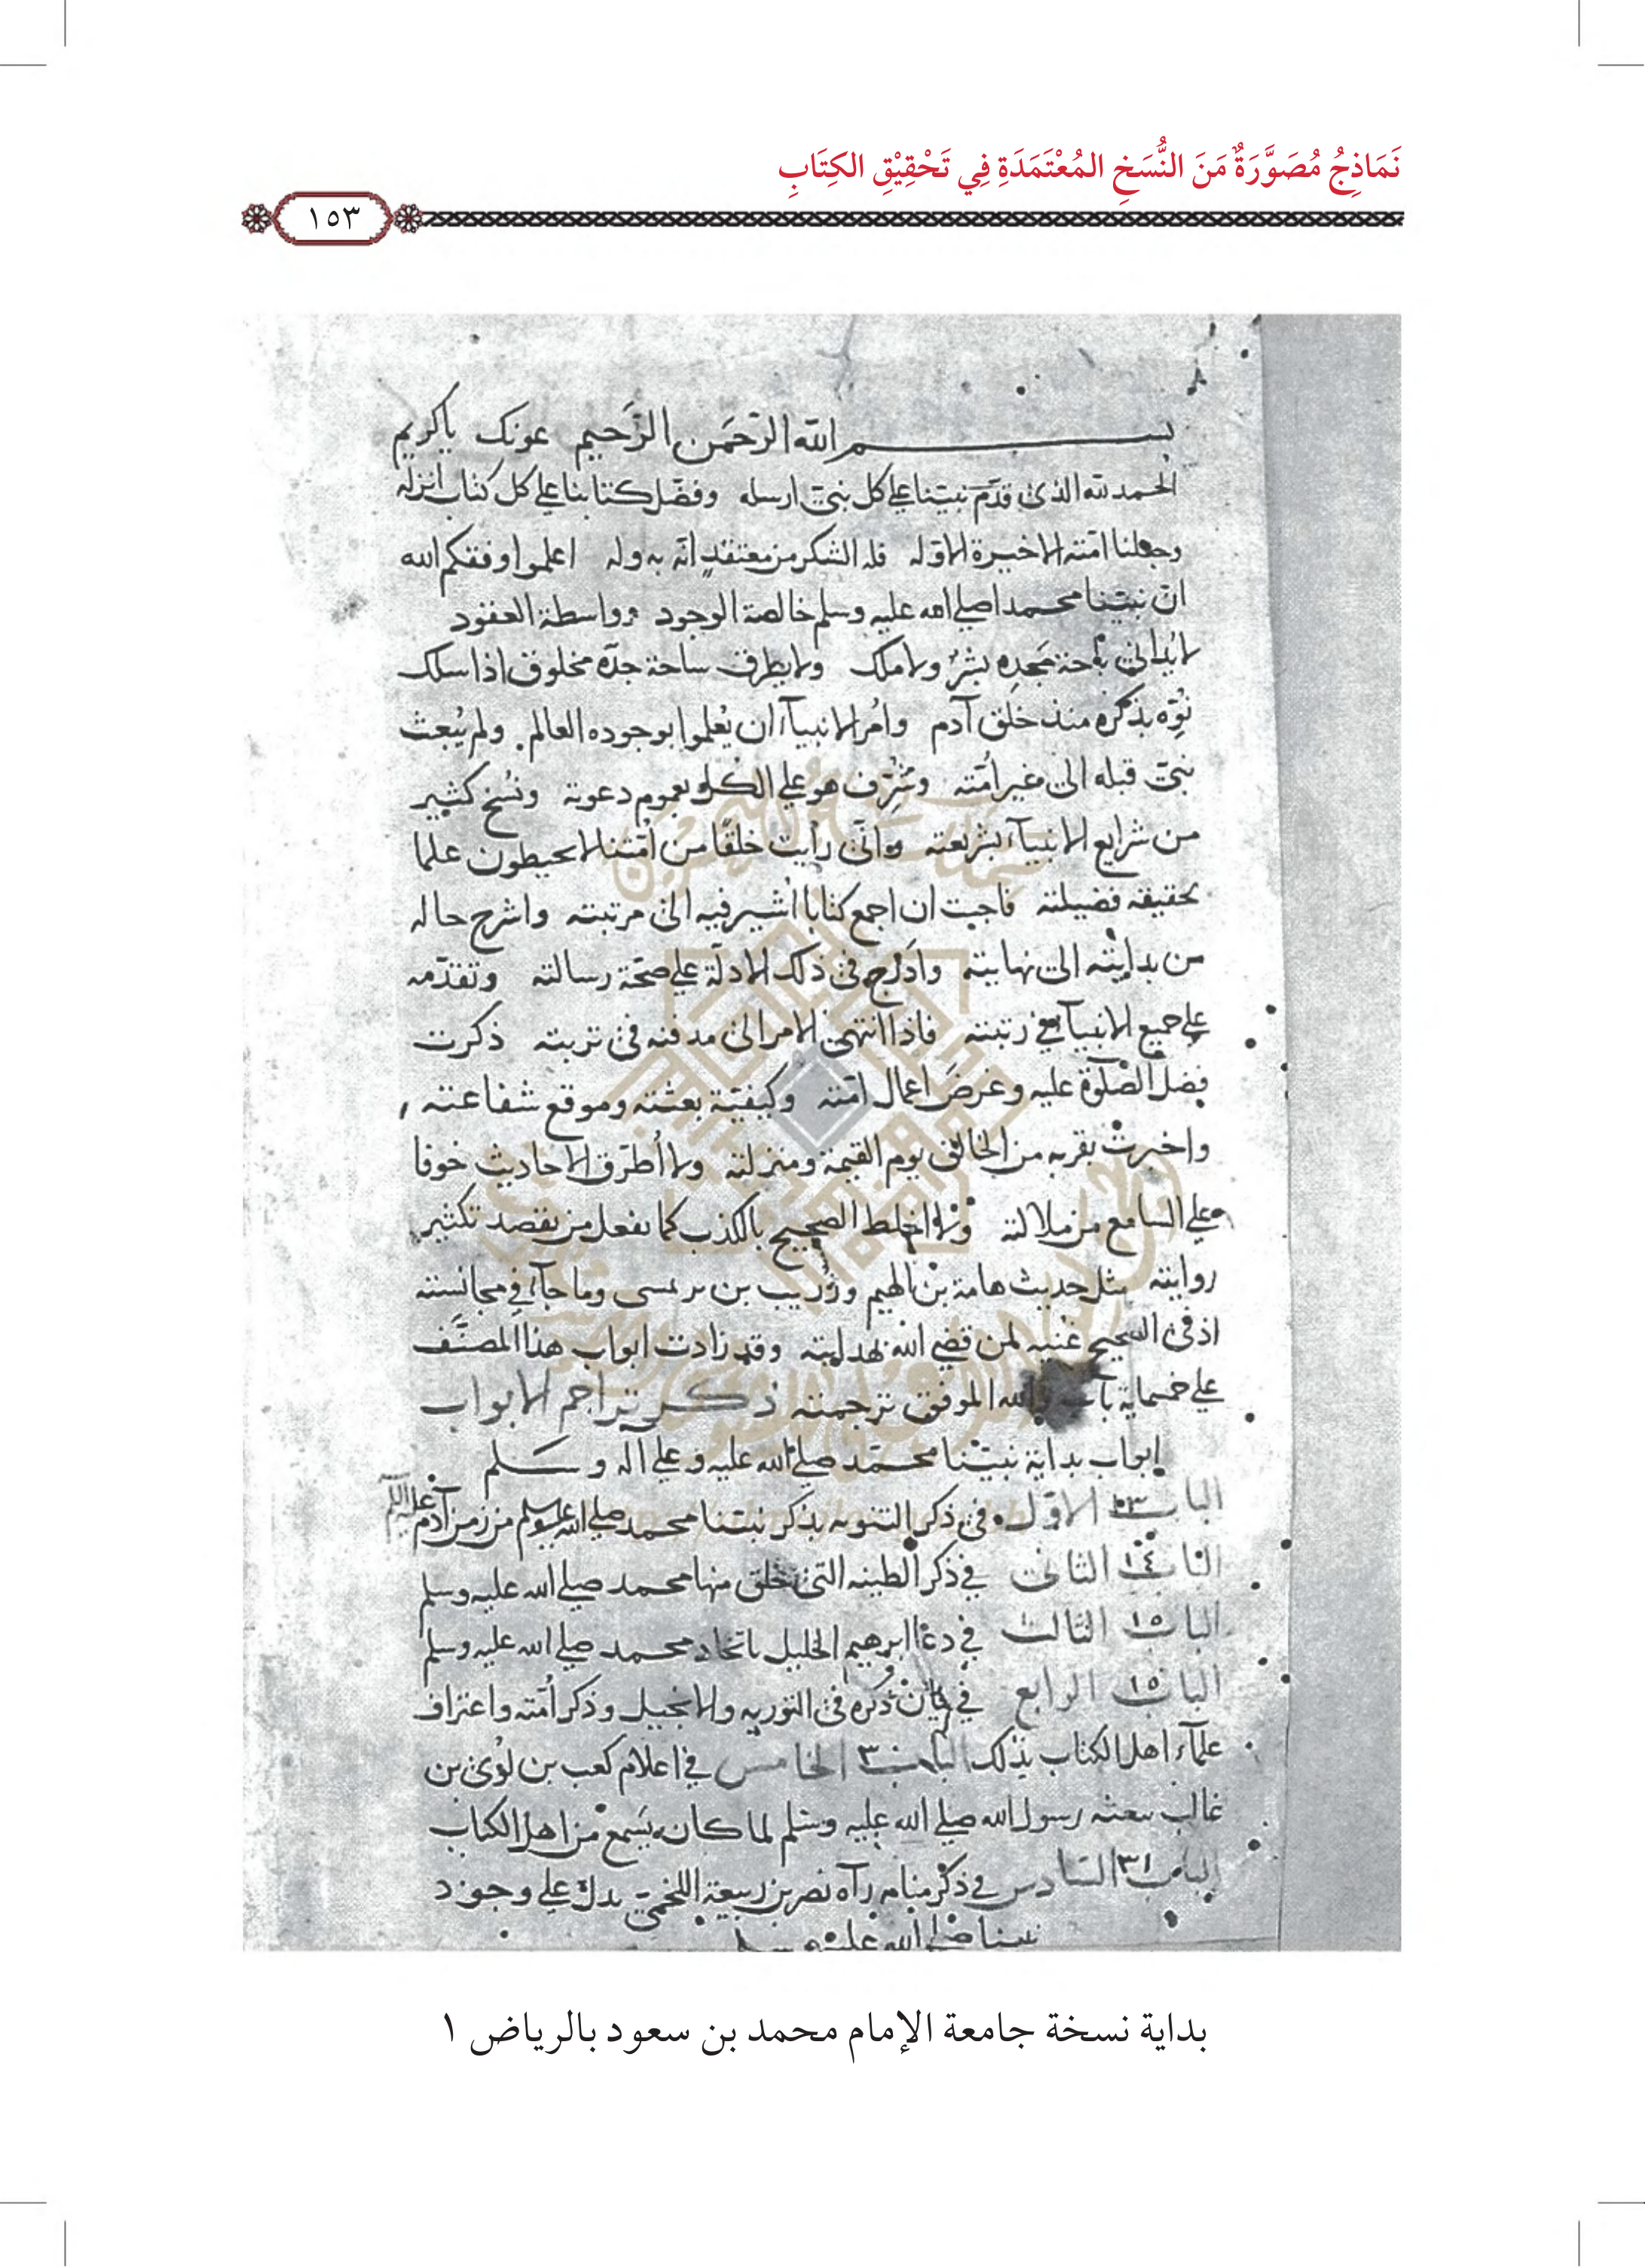 نَمَاذِجُ مُصَوَّرَةٌ مَنَ النُّسَخِ المُعْتَمَدَةِ فِي تَحْقِيْقِ الكِتَابِ
١٥٣
بسم الله الرَّحمَن الرَّحيم عونك ياكريم
الحمد لله الذى قدّم نبيّنا على كل نبىّ ارسله وفضّل كتابنا على كل كتاب انزله
وجعلنا امّته الاخيرة الاوّله فله الشكر من معتقدٍ انّه به وله اعلموا وفقكم الله
انّ نبيّنا محمدا صلى الله عليه وسلم خالصة الوجود وواسطة العقود
لا يُدانى باحة مَجدِه بشرٌ ولا ملك ولا يطرق ساحة جدّه مخلوق اذا سلك
نُوِّه بذكره منذ خلق آدم وامُر الانبيآء ان يُعلموا بوجوده العالم ولم يُبعث
نبىّ قبله الى غير امّته وشُرِّف هو على الكل بعموم دعوته ونُسخ كثير
من شرايع الانبيآء بشريعته وانّى رأيت خلقًا من امّتنا لا يحيطون علما
بحقيقه فضيلته فاحببت ان اجمع كتابا اشير فيه الى مرتبته واشرح حاله
من بدايته الى نهايته وادرج فى ذلك الادلّة على صحّة رسالته وتقدّمه
على جميع الانبيآء فى رتبته فاذا انتهى الامر الى مدفنه فى تربته ذكرت
فضل الصّلوة عليه وعرض اعمال امّته وكيفيّة بعثته وموقع شفاعته
واخبرت بقربه من الخالق يوم القيمة ومنزلته ولا أُطرّق الاحاديث خوفا
على السامع من ملالته ولا اخلط الصحيح بالكذب كما يفعل من يقصد تكثير
روايته مثل حديث هامة بن الهيم وزُرَيب بن برثمسى وما جآء فى مجانسته
اذ فى الصحيح غنيه لمن قضى الله بهدايته وقد زادت ابواب هذا المصنَّف
على خمسماية باب والله الموفق ترجمته ذكر تراجم الابواب
ابواب بداية نبيّنا محمّد صلى الله عليه وعلى آله وسلم
الباب الاوّل فى ذكر التنويه بذكر نبيّنا محمد صلى الله عليه وسلم من زمن آدم عليه السلم
الباب الثانى فى ذكر الطينه التى خلق منها محمد صلى الله عليه وسلم
الباب ١٥ الثالث فى دعآ ابرهيم الخليل باتخاد محمد صلى الله عليه وسلم
الباب ١٥ الرابع فى بيان ذكره فى التوريه والانجيل وذكر امّته واعتراف
علمآء اهل الكتاب بذلك الباب ٣ الخامس فى اعلام كعب بن لؤى بن
غالب ببعثه رسول الله صلى الله عليه وسلم لما كان يسمع من اهل الكتاب
الباب ٣١ السادس فى ذكر منام رآه نصر بن ربيعة اللخمىّ يدل على وجود
نبينا صلى الله عليه وسلم
بداية نسخة جامعة الإمام محمد بن سعود بالرياض ١